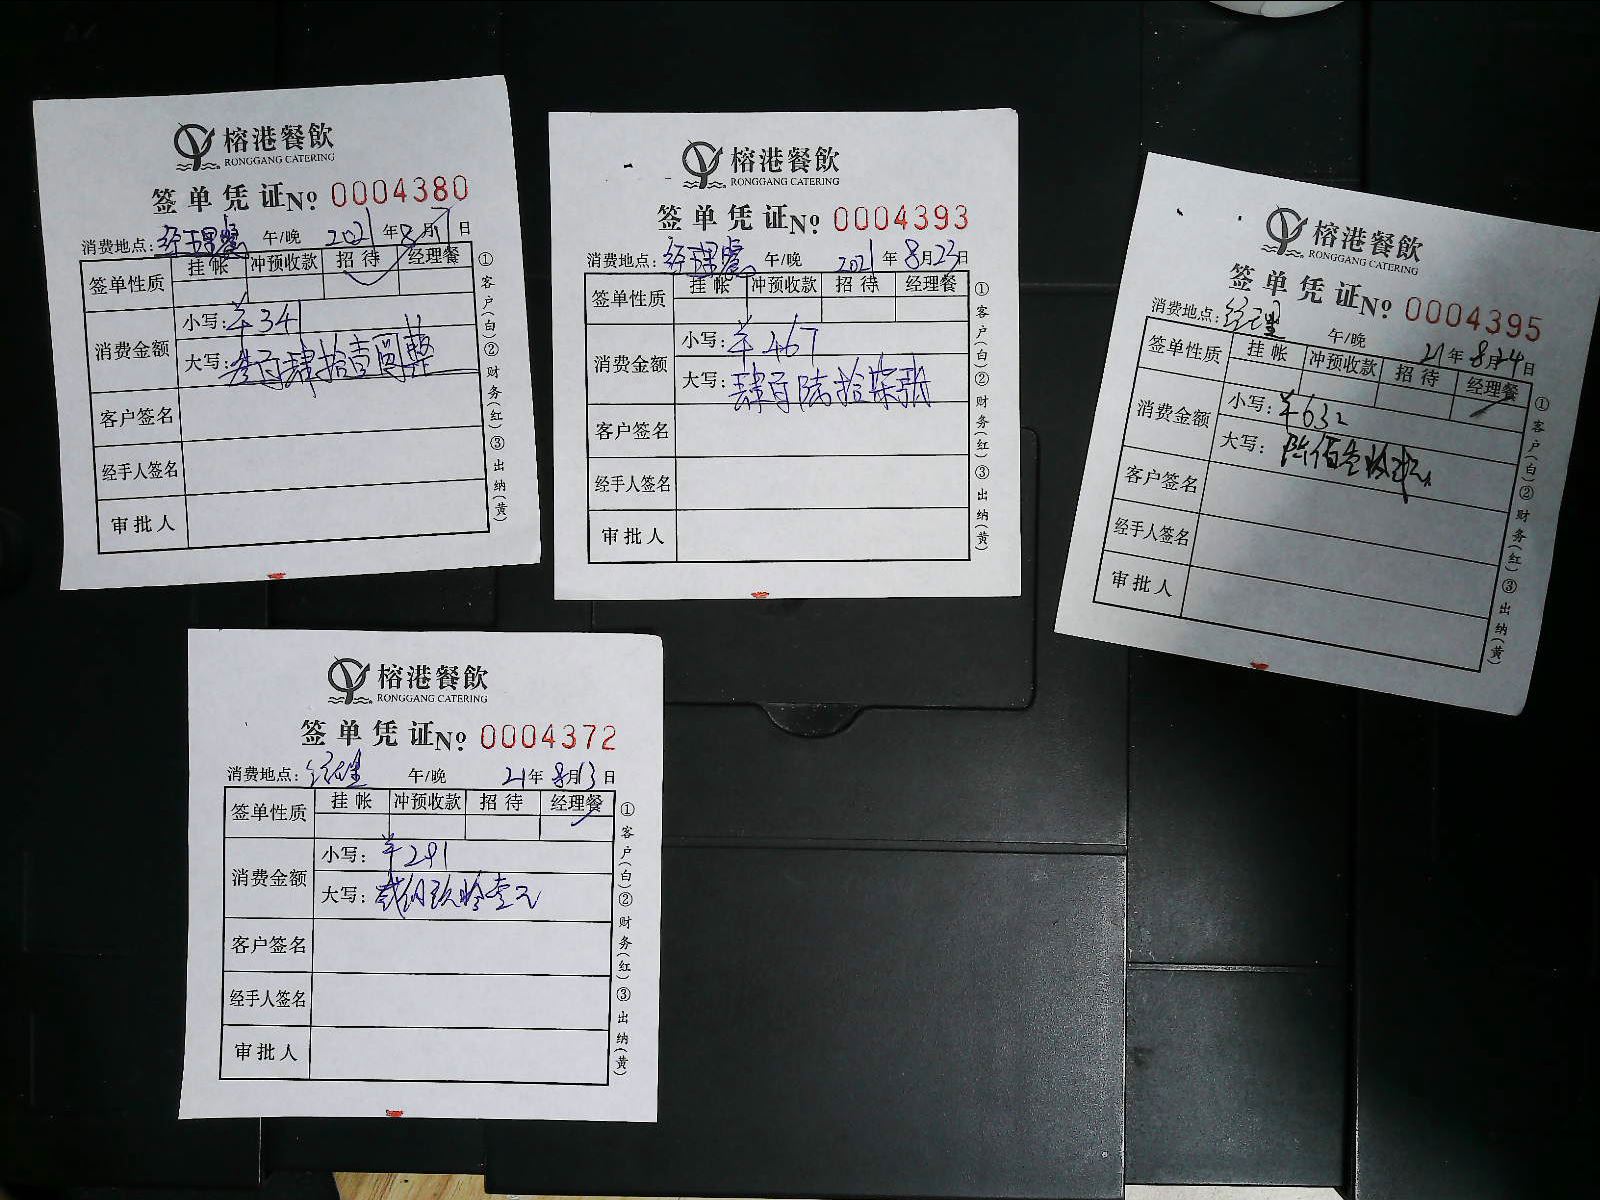 榕港餐飲
RONGGANG CATERING
签单凭证№ 0004380
消费地点：经理餐 午/晚 2021年8月17日
签单性质 挂帐 冲预收款 招待 经理餐
消费金额 小写：¥341
大写：叁百肆拾壹圆整
客户签名
经手人签名
审批人
①客户(白)②财务(红)③出纳(黄)
榕港餐飲
RONGGANG CATERING
签单凭证№ 0004393
消费地点：经理餐 午/晚 2021年8月23日
签单性质 挂帐 冲预收款 招待 经理餐
消费金额 小写：¥467
大写：肆百陆拾柒
客户签名
经手人签名
审批人
①客户(白)②财务(红)③出纳(黄)
榕港餐飲
RONGGANG CATERING
签单凭证№ 0004395
消费地点：经理 午/晚 21年8月24日
签单性质 挂帐 冲预收款 招待 经理餐
消费金额 小写：¥632
大写：陆佰叁拾贰元
客户签名
经手人签名
审批人
①客户(白)②财务(红)③出纳(黄)
榕港餐飲
RONGGANG CATERING
签单凭证№ 0004372
消费地点：经理 午/晚 21年8月13日
签单性质 挂帐 冲预收款 招待 经理餐
消费金额 小写：¥291
大写：贰佰玖拾壹元
客户签名
经手人签名
审批人
①客户(白)②财务(红)③出纳(黄)